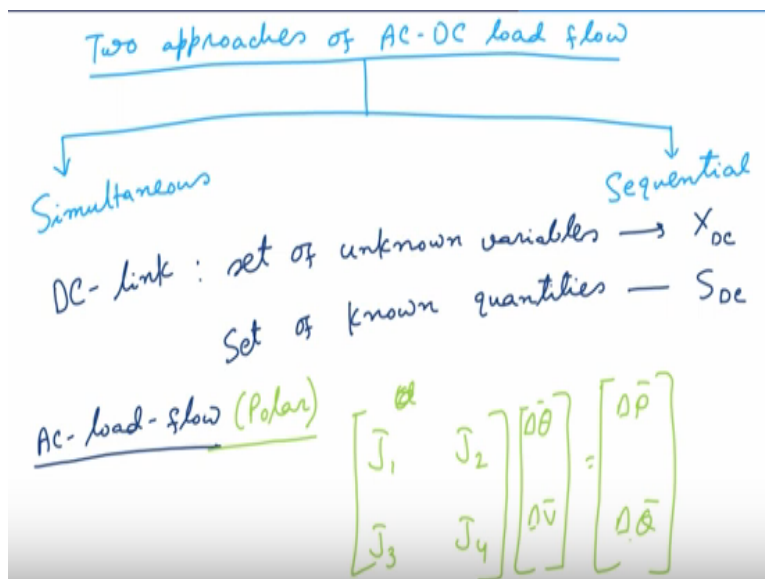 Two approaches of AC-DC load flow
Simultaneous
Sequential
DC-link : set of unknown variables → X_DC
Set of known quantities — S_DC
AC-load-flow (Polar)
[J̄₁ J̄₂] [Δθ̄] = [ΔP̄]
[J̄₃ J̄₄] [ΔV̄] [ΔQ̄]